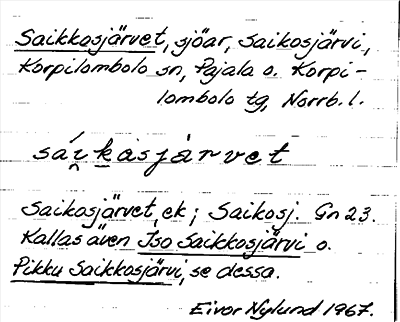 Saikkosjärvet, sjöar, Saikosjärvi,
Korpilombolo sn, Pajala o. Korpi-
lombolo tg, Norrb. l.
sái̯kasjàrvet
Saikosjärvet, ek; Saikosj. Gn 23.
Kallas även Iso Saikkosjärvi o.
Pikku Saikkosjärvi, se dessa.
Eivor Nylund 1967.